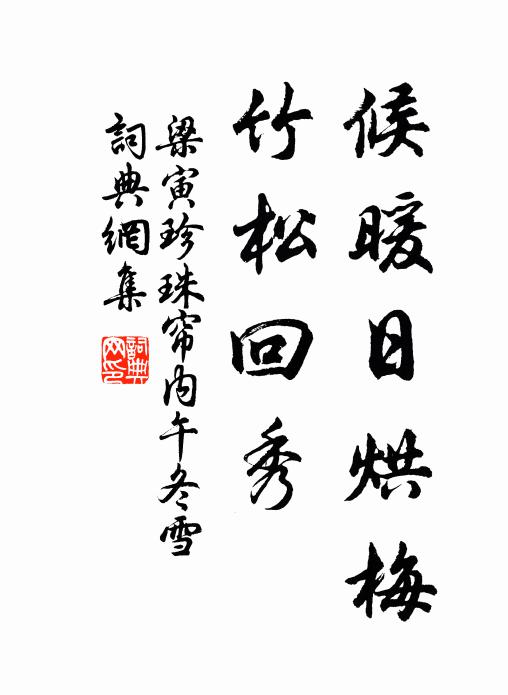 候暖日烘梅
竹松回秀
梁寅珍珠帘内午冬雪
詞典網集
詞典
网印